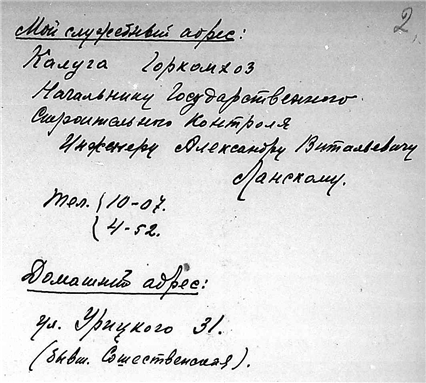 2
Мой служебный адрес:
Калуга Горкомхоз
Начальнику Государственного
Строительного Контроля
Инженеру Александру Витальевичу
Ланскому.
Тел. { 10-07.
{ 4-52.
Домашний адрес:
ул. Урицкого 31.
(бывш. Сошественская).